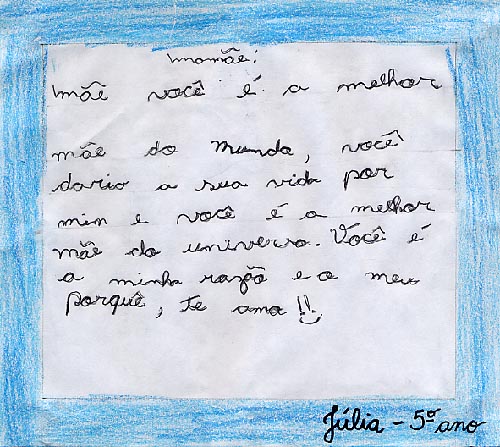 mamãe:
mãe você é a melhor
mãe do munda, você
dario a sua vida por
min e você é a melhor
mãe do univero. Você é
a minha razão e o meu
porquê, te amo!!
Júlia - 5º ano